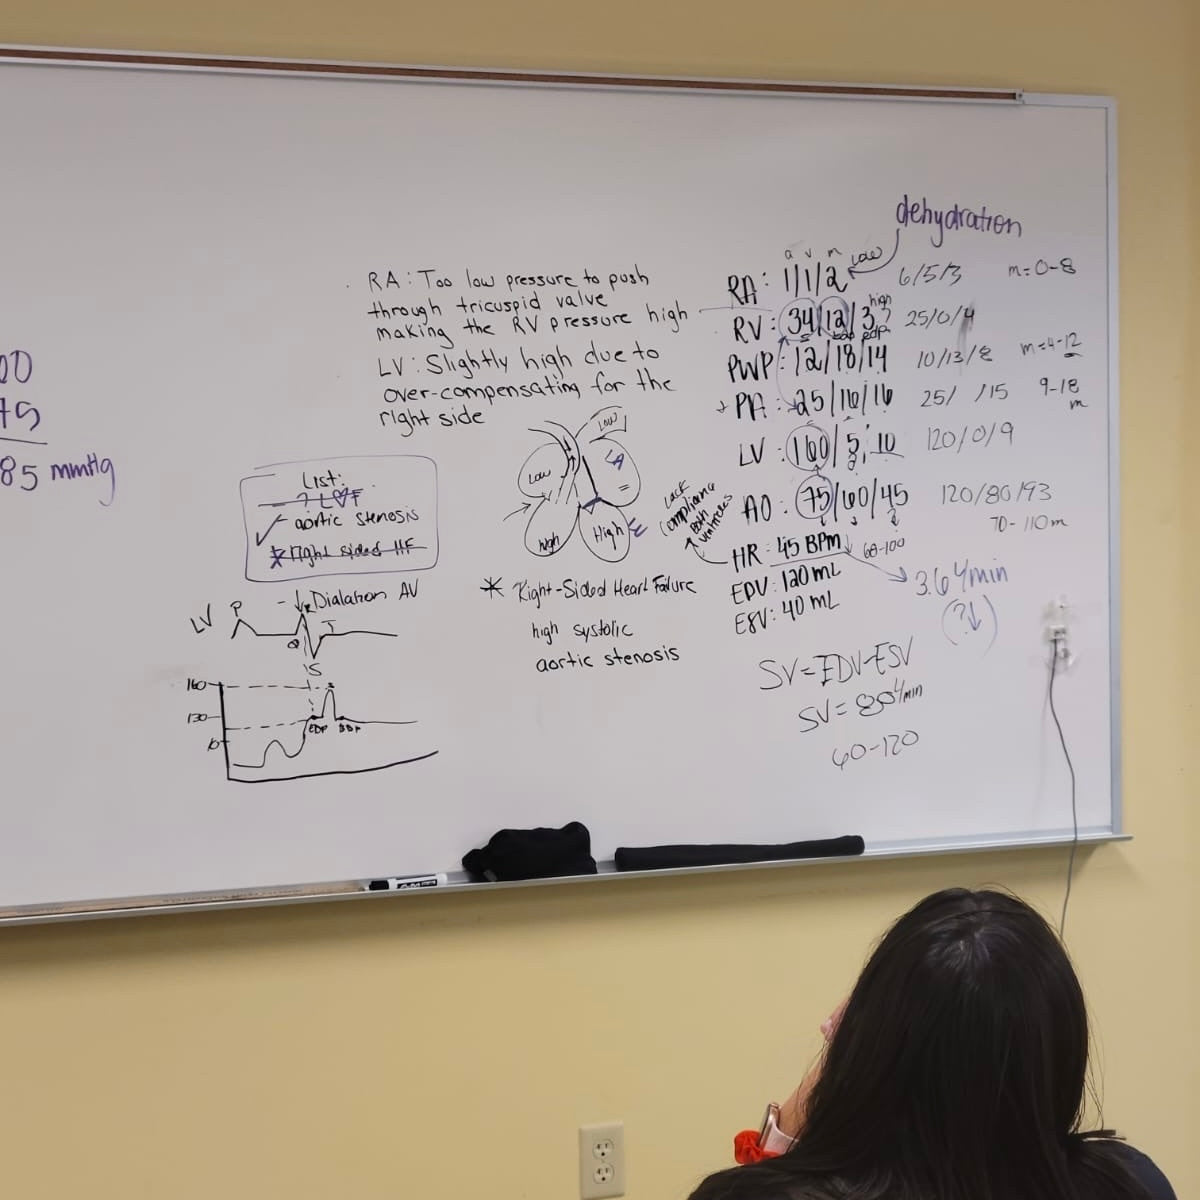 00
75
85 mmHg
RA: Too low pressure to push
through tricuspid valve
making the RV pressure high
LV: Slightly high due to
over-compensating for the
right side
List:
aortic stenosis
* right sided HF
Low
Low
LA
high
High
Lack
compliance
both
ventricles
* Right-Sided Heart Failure
high systolic
aortic stenosis
LV P
Dialation AV
Q
S
T
160
130
10
EDP
dehydration
a v m Low
RA: 1/1/2 6/5/3 m=0-8
high
RV: 34/12/3? 25/0/4
edp
PWP: 12/18/14 10/13/8 m=4-12
PA: 25/16/16 25/ /15 9-18
m
LV: 160/5, 10 120/0/9
AO: 75/60/45 120/80/93
70-110m
HR: 45 BPM↓ 60-100
EDV: 120 mL
ESV: 40 mL
3.6 L/min
(?↓)
SV=EDV-ESV
SV= 80 L/min
60-120